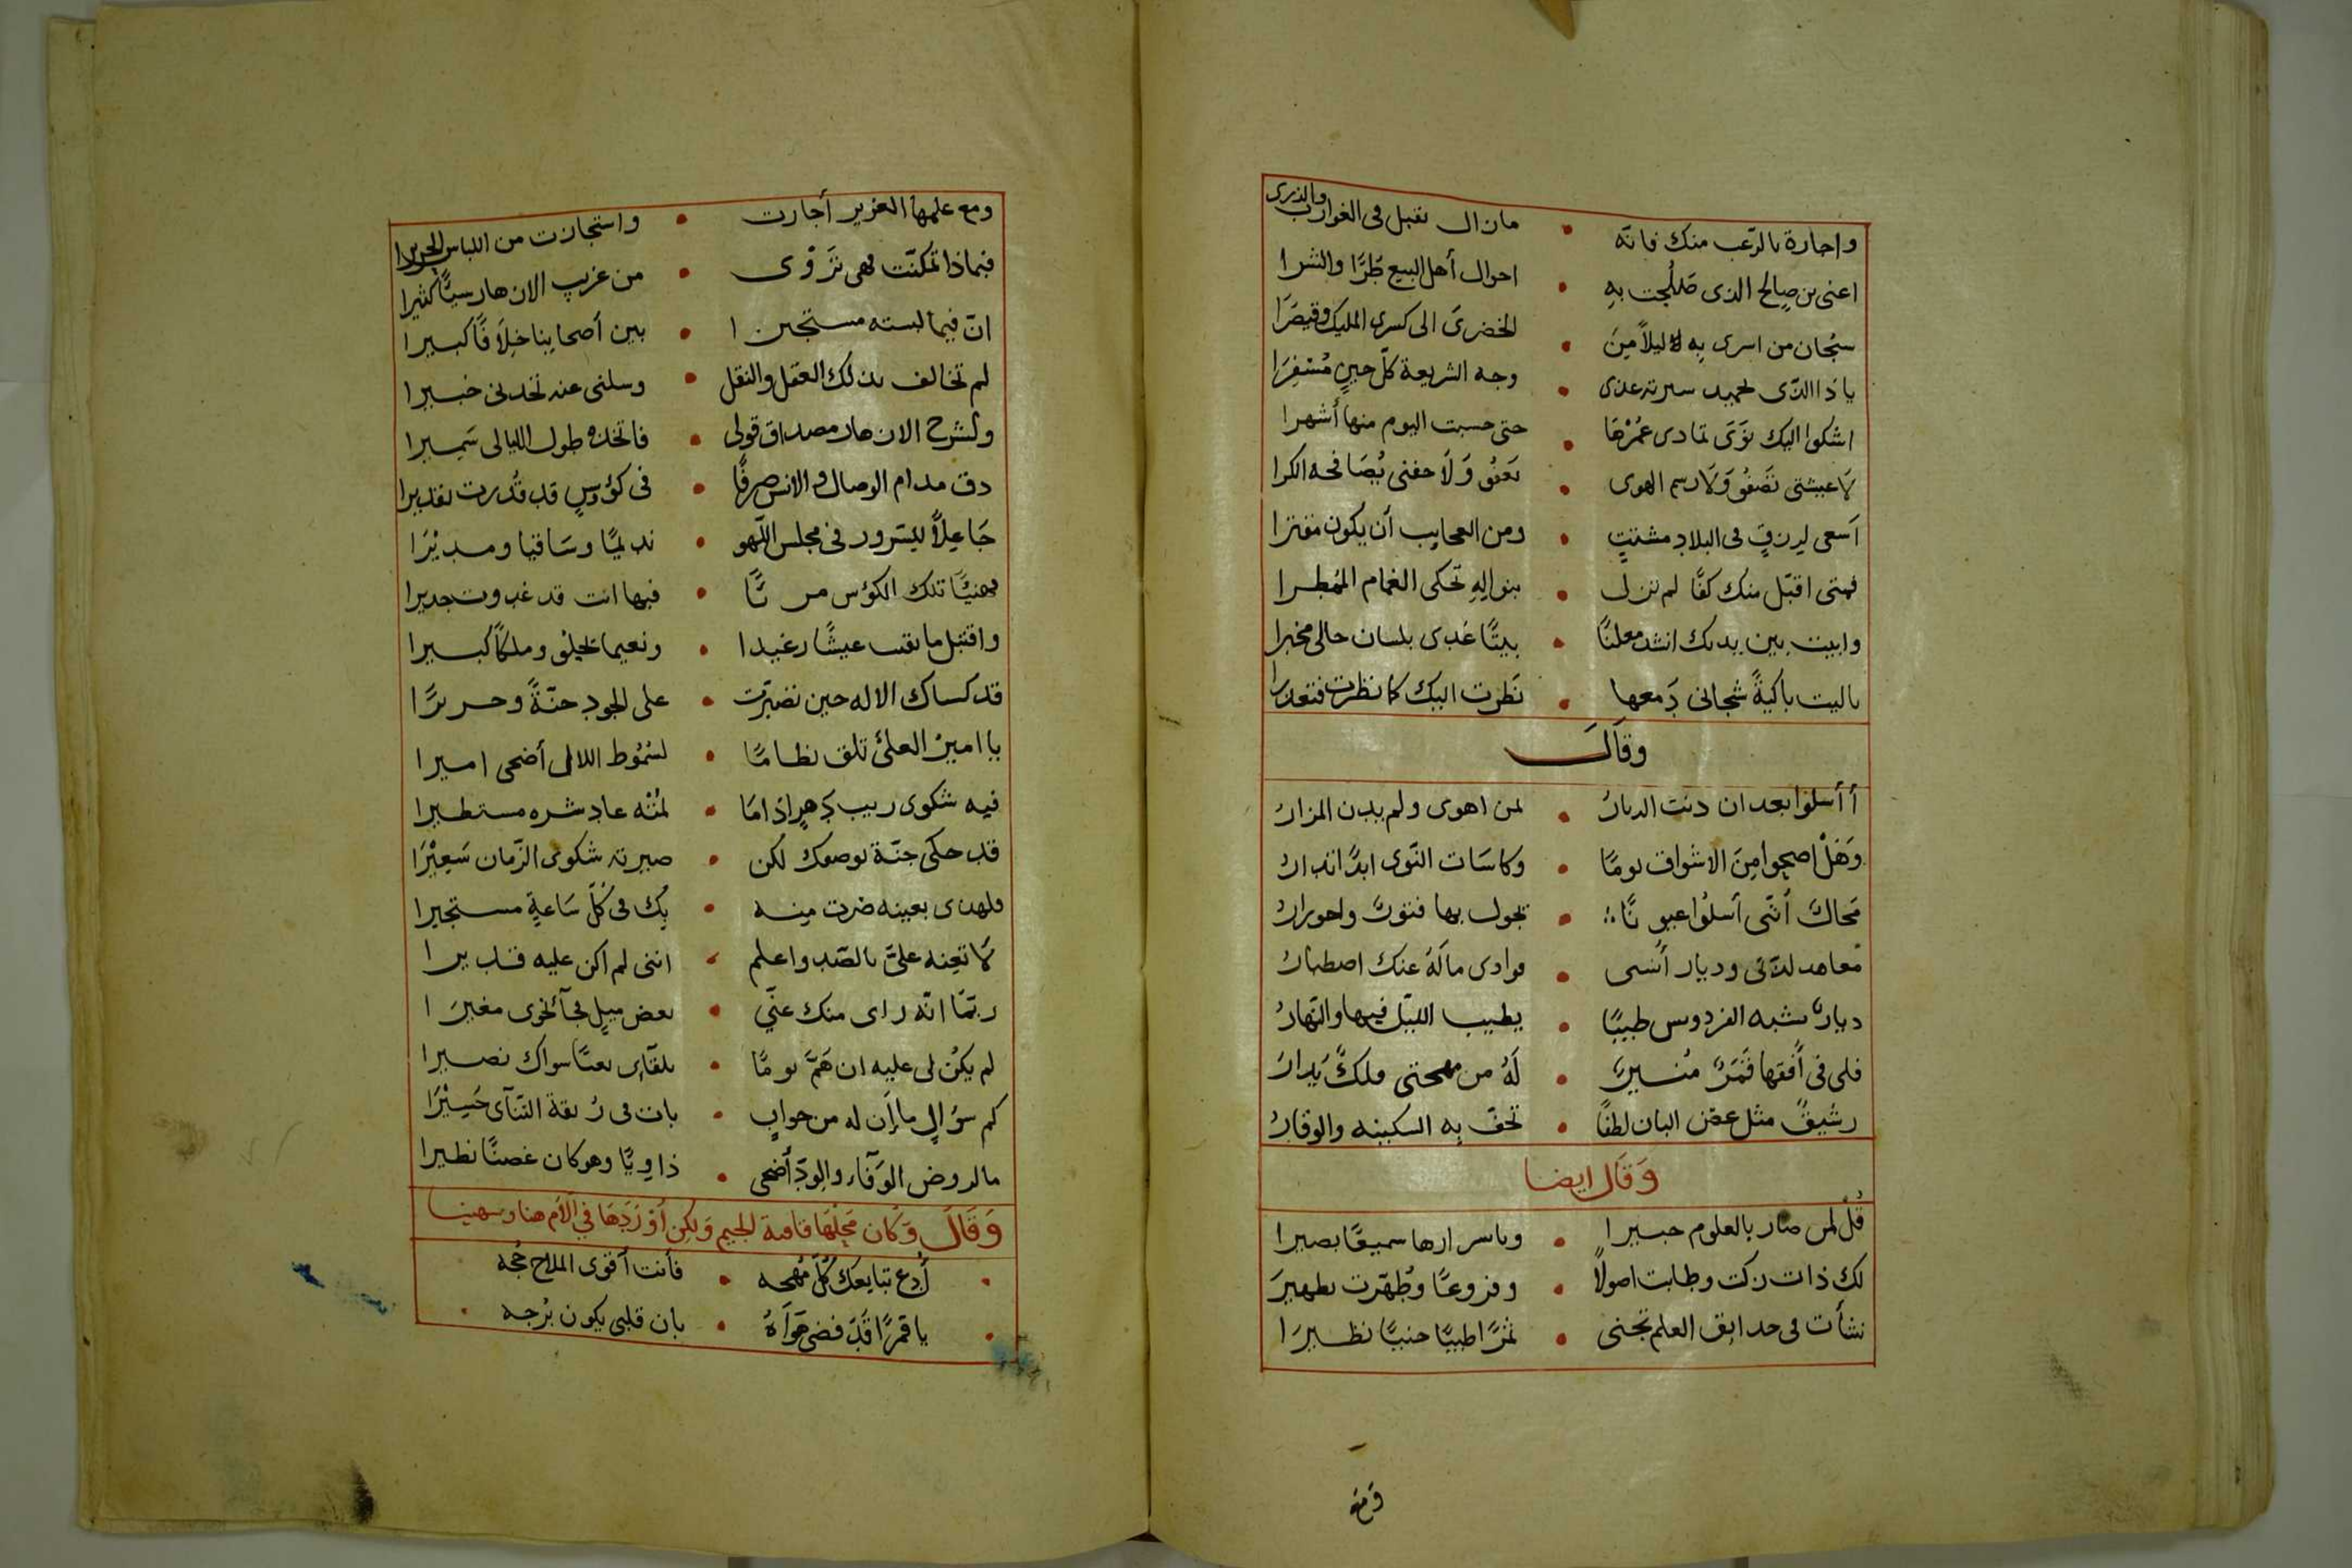 واجارة بالرّعب منك فانّه • مازال نقبل فى الغوارب والذرى
اعنى بن صالح الذى صَلُحت بهِ • احوال أهل البيع طرًّا والشرا
سبُحان من اسرى بِه ليلاً مِنَ • الخضرى الى كسرى المليك وقيصَرَا
ياذا الذّى لحميد سيرته غدى • وجه الشريعة كلّ حينٍ مُسْفِرَا
اشكوا اليك نَوًى تمادى عُمْرُهَا • حتى حسبت اليوم منها أشهرا
لَا عيشتى تَصْفُو وَلَا رسم الهوى • يَعْفُو وَلَا جفنى يُصَافحه الكرا
أسعى لرزقٍ فى البلادِ مشتتٍ • ومن العجايب أن يكون مقترا
فمتى اقبّل منك كفًّا لم تزل • بنوالِهِ تحكى الغمام الممُطرا
وابيت بين يديك انشد معلنًا • بيتًا غدى بلسان حالى مخبرا
ياليت باكيةً شجانى دَمعها • نَظَرت اليك كما نظرت فتعذرا
وقَالَ
أأسلوا بعد ان دنت الديارُ • لمن اهوى ولم يدن المزارُ
وَهَلْ اصحوا مِنَ الاشواق يومًا • وكاسَات النّوى ابدًا تدارُ
مَحَالٌ أنّنى أسلُوا عيونًا • يجول بها فتورٌ واحورارُ
مَعاهد لذّتى وديار أُنسى • فوادى مالَهُ عنك اصطبارُ
ديارٌ تشبه الفردوس طيبًا • يطيب الليّل فيها والنّهارُ
فلى فى أُفقها قَمَرٌ مُنسيرٌ • لَهُ من مهجتى فلكٌ يُدارُ
رشيقٌ مثل غصن البان لطفًا • تحفّ بِه السكينه والوقارُ
وَقَال ايضا
قُل لمن صار بالعلوم خبيرا • وباسرارها سميعًا بصيرا
لك ذات زكت وطابت اصولاً • وفزوعًا وطُهّرت تطهيرَ
نشأت فى حدايق العلم تجنى • ثمرًا طيبًا جنيًّا نظيرَا
ومع علمها العزيز أجازت • واستجازت من اللباس الحريرا
فبماذا تمكنّت فهى تَرْوى • من غريب الازهار سيًّا كثيرا
انّ فيما لبسته مستجيزا • بين أصحابنا خِلَافًا كبيرا
لم تخالف بذلك العقل والنقل • وسلنى عنه تجدنى خبيرا
ولشرح الازهار مصداق قولى • فاتخذه طول الليالى سَمِيرا
ذق مدام الوصال والانس صرفًا • فى كؤوسٍ قد قُدرت تقديرا
جَاعِلاً للسّرور فى مجلس اللّهو • نديمًا وسَاقيا ومديْرَا
فهنيًّا تلك الكؤس مريًّا • فبها انت قد غدوت جديرا
واقتبل ما بقت عيشًا رغيدا • ونعيما يحلو وملكًا كبيرا
قد كساك الاله حين تصبّرت • على الجود جنّةً وحريرًا
يا امين العلى تلق نظامًا • لسُمُوط اللالى أضحى اميرا
فيه شكوى ريب دَهرٍ اذا مَا • لمُتُه عاد شره مستطيرا
قد حكى جنّة بوصفك لكن • صيرته شكوى الزّمان سَعِيْرَا
فلهذى بعينه ضرت منه • بِكَ فى كُلّ سَاعةٍ مستجيرا
لَا تعِنه علىّ بالصّد واعلم • اننى لم اكن عليه قديرا
ربمّا انّه راى منك عنّي • بعض ميلٍ فجآ نحوى مغيرَا
لم يكُن لى عليه ان هَمَّ يومًا • بلقآى بعتًا سواك نصيرا
كم سؤالٍ ما إن له من جوابٍ • بات فى رُبقة التنآى حَسِيْرَا
مالروض الوَفآء والوِدّ أضحى • ذاوِيًا وهو كان غصنًا نظيرا
وَقَالَ وَكَان مَحَلّهَا قافية الجيم وَلكِن أوْرَدَهَا فى الأم هنا
أَدع تبايعك كُلّ مُهجه • فأنت أقوى الملاح حُجه
يا قمرًا قَد فضى هَوَاهُ • بان قلبى يكون بُرجه